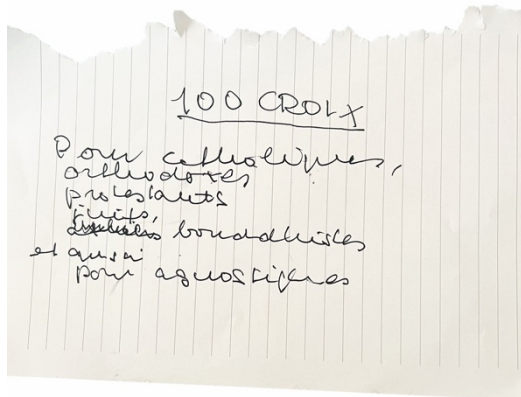 100 CROIX
Pour catholiques,
orthodoxes
protestants
juifs,
bouddhistes
et aussi
pour agnostiques